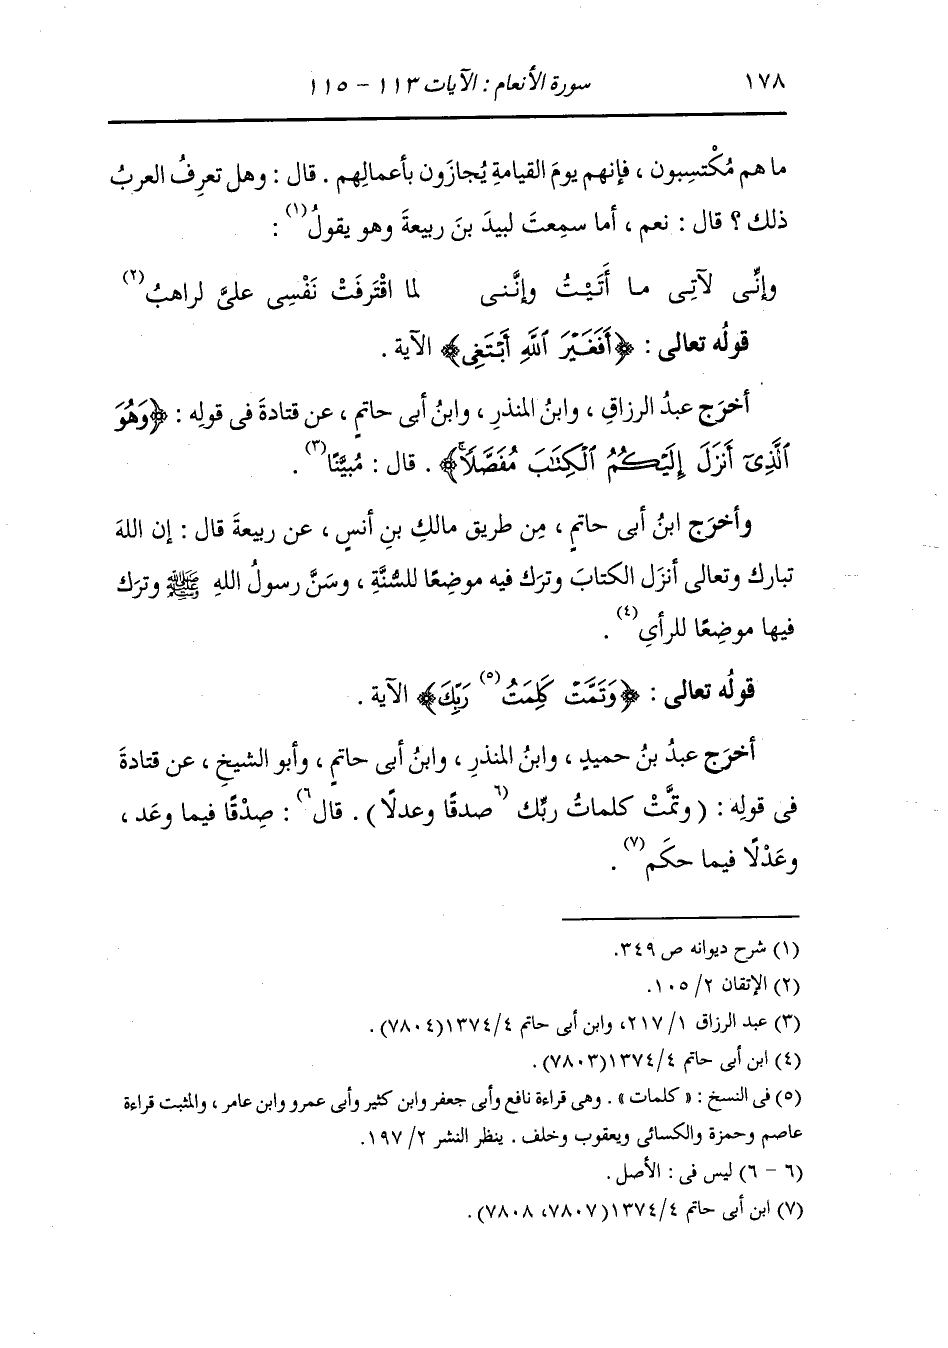 ١٧٨ سورة الأنعام : الآيات ١١٣ - ١١٥
ما هم مُكْتسِبون ، فإنهم يومَ القيامةِ يُجازَون بأعمالِهم . قال : وهل تعرِفُ العربُ
ذلك ؟ قال : نعم ، أما سمِعتَ لبيدَ بنَ ربيعةَ وهو يقولُ(١) :
وإنِّى لآتِى ما أَتَيْتُ وإنَّنى لما اقْتَرفَتْ نَفْسِى علىَّ لراهبُ(٢)
قولُه تعالى : ﴿أَفَغَيْرَ ٱللَّهِ أَبْتَغِى﴾ الآية .
أخرَج عبدُ الرزاقِ ، وابنُ المنذرِ ، وابنُ أبى حاتمٍ ، عن قتادةَ فى قولِه : ﴿وَهُوَ
ٱلَّذِىٓ أَنزَلَ إِلَيْكُمُ ٱلْكِتَٰبَ مُفَصَّلًاۚ﴾ . قال : مُبيَّنًا(٣) .
وأخرَج ابنُ أبى حاتمٍ ، مِن طريقِ مالكِ بنِ أنسٍ ، عن ربيعةَ قال : إن اللهَ
تبارك وتعالى أنزَل الكتابَ وترَك فيه موضِعًا للسُّنَّةِ ، وسَنَّ رسولُ اللهِ ﷺ وترَك
فيها موضِعًا للرأيِ(٤) .
قولُه تعالى : ﴿وَتَمَّتْ كَلِمَتُ(٥) رَبِّكَ﴾ الآية .
أخرَج عبدُ بنُ حميدٍ ، وابنُ المنذرِ ، وابنُ أبى حاتمٍ ، وأبو الشيخِ ، عن قتادةَ
فى قولِه : (وتمَّتْ كلماتُ ربِّك (٦صدقًا وعدلًا) . قال٦) : صِدْقًا فيما وعَد ،
وعَدْلًا فيما حكَم(٧) .
(١) شرح ديوانه ص ٣٤٩.
(٢) الإتقان ٢/ ١٠٥.
(٣) عبد الرزاق ١/ ٢١٧، وابن أبى حاتم ٤/ ١٣٧٤(٧٨٠٤).
(٤) ابن أبى حاتم ٤/ ١٣٧٤(٧٨٠٣).
(٥) فى النسخ : « كلمات » . وهى قراءة نافع وأبى جعفر وابن كثير وأبى عمرو وابن عامر ، والمثبت قراءة
عاصم وحمزة والكسائى ويعقوب وخلف . ينظر النشر ٢/ ١٩٧.
(٦ - ٦) ليس فى : الأصل .
(٧) ابن أبى حاتم ٤/ ١٣٧٤(٧٨٠٧، ٧٨٠٨).